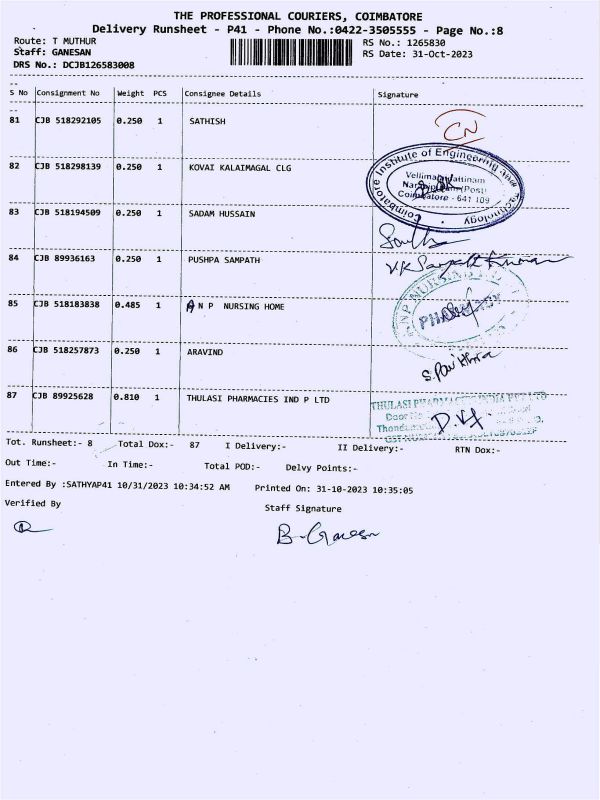 THE PROFESSIONAL COURIERS, COIMBATORE
Delivery Runsheet - P41 - Phone No.:0422-3505555 - Page No.:8
Route: T MUTHUR
RS No.: 1265830
Staff: GANESAN
RS Date: 31-Oct-2023
DRS No.: DCJB126583008
S No Consignment No Weight PCS Consignee Details Signature
81 CJB 518292105 0.250 1 SATHISH CN
82 CJB 518298139 0.250 1 KOVAI KALAIMAGAL CLG
Coimbatore Institute of Engineering and Technology
Coimbatore - 641 109
83 CJB 518194509 0.250 1 SADAM HUSSAIN
84 CJB 89936163 0.250 1 PUSHPA SAMPATH
85 CJB 518183838 0.485 1 A N P NURSING HOME
PHARMACY
86 CJB 518257873 0.250 1 ARAVIND
87 CJB 89925628 0.810 1 THULASI PHARMACIES IND P LTD
THULASI PHARMACIES INDIA PVT LTD
Tot. Runsheet:- 8 Total Dox:- 87 I Delivery:- II Delivery:- RTN Dox:-
Out Time:- In Time:- Total POD:- Delvy Points:-
Entered By :SATHYAP41 10/31/2023 10:34:52 AM Printed On: 31-10-2023 10:35:05
Verified By Staff Signature
B-Ganesan